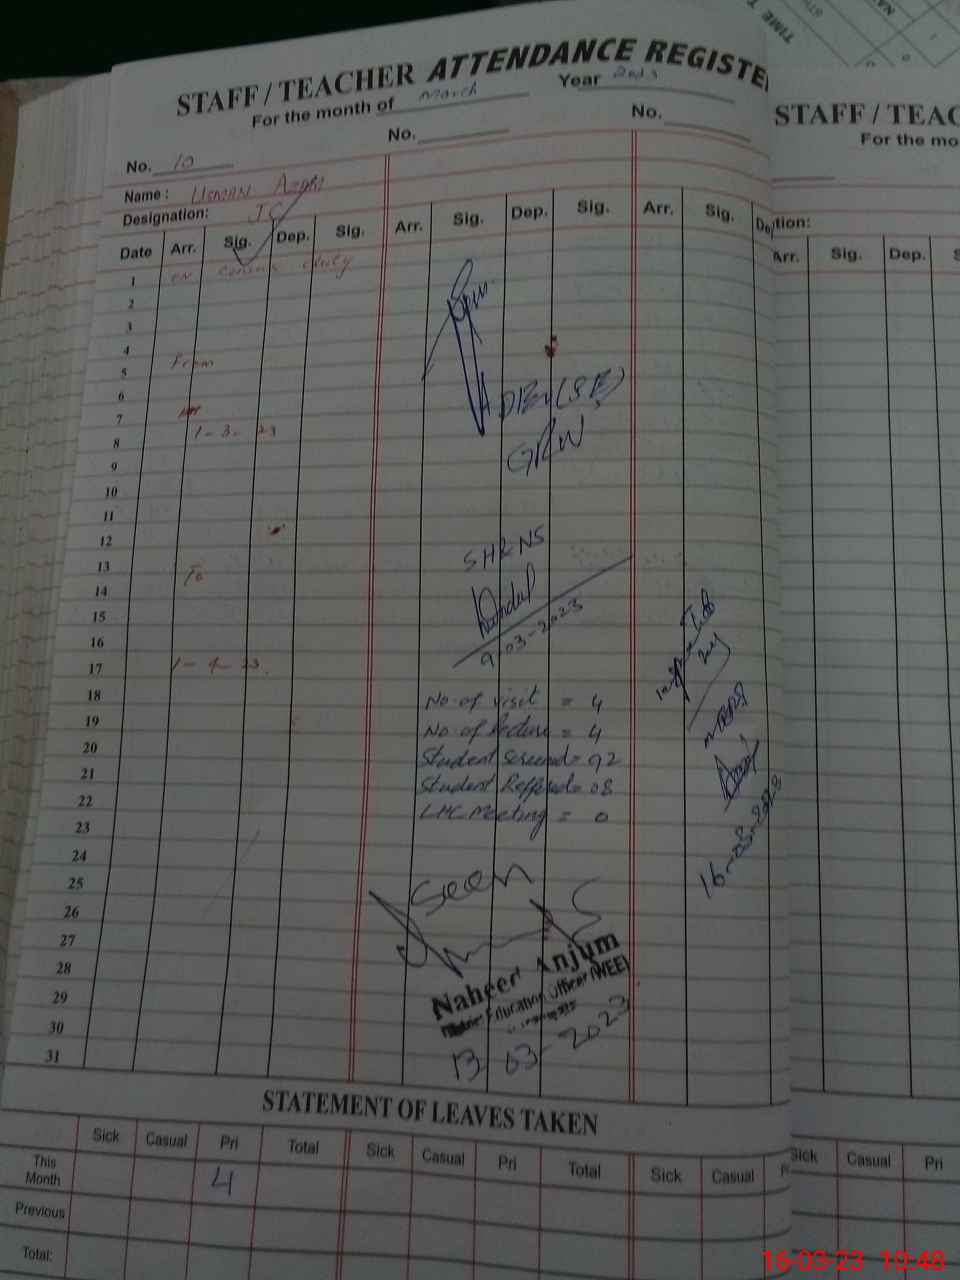 STAFF / TEACHER ATTENDANCE REGISTE
For the month of March Year 2023
No. 10 No. No.
Name : USMAN
Designation: JC
Date Arr. Sig. Dep. Sig. Arr. Sig. Dep. Sig. Arr. Sig. De
1 on census duty
2
3
4
5 From
6
7
8 1-3-23
9
10
11
12
13
14 To
15
16
17 1-4-23
18
19
20
21
22
23
24
25
26
27
28
29
30
31
(SE)
GRW
SH&NS
9-03-2023
No. of visit = 4
No. of lecture = 4
Student Screened = 92
Student Reffered = 08
LHC Meeting = 0
Seen
Naheer Anjum
Education Officer (WEE)
13 03-2023
16-03-2023
STATEMENT OF LEAVES TAKEN
Sick Casual Pri Total Sick Casual Pri Total Sick Casual
This Month 4
Previous
Total:
STAFF / TEAC
For the mo
tion:
Arr. Sig. Dep. S
Sick Casual Pri
TIME T
16-03-23 10:48